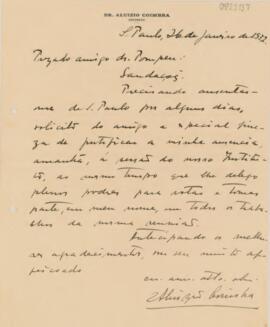 DR. ALUIZIO COIMBRA
S. Paulo, 26 de Janeiro de
Prezado amigo dr. Pompeu
Saudações
Precisando ausentar-
me de S. Paulo por alguns dias,
solicito do amigo a especial fine-
za de justificar a minha ausencia,
amanhã, á sessão do nosso Institu-
to, ao mesmo tempo que lhe delego
plenos poderes para votar e tomar
parte, em meu nome, em todos os traba-
lhos da mesma reunião.
Antecipando os melho-
res agradecimentos, sou seu muito af-
feiçoado
am. atto. obr.
Aluizio Coimbra